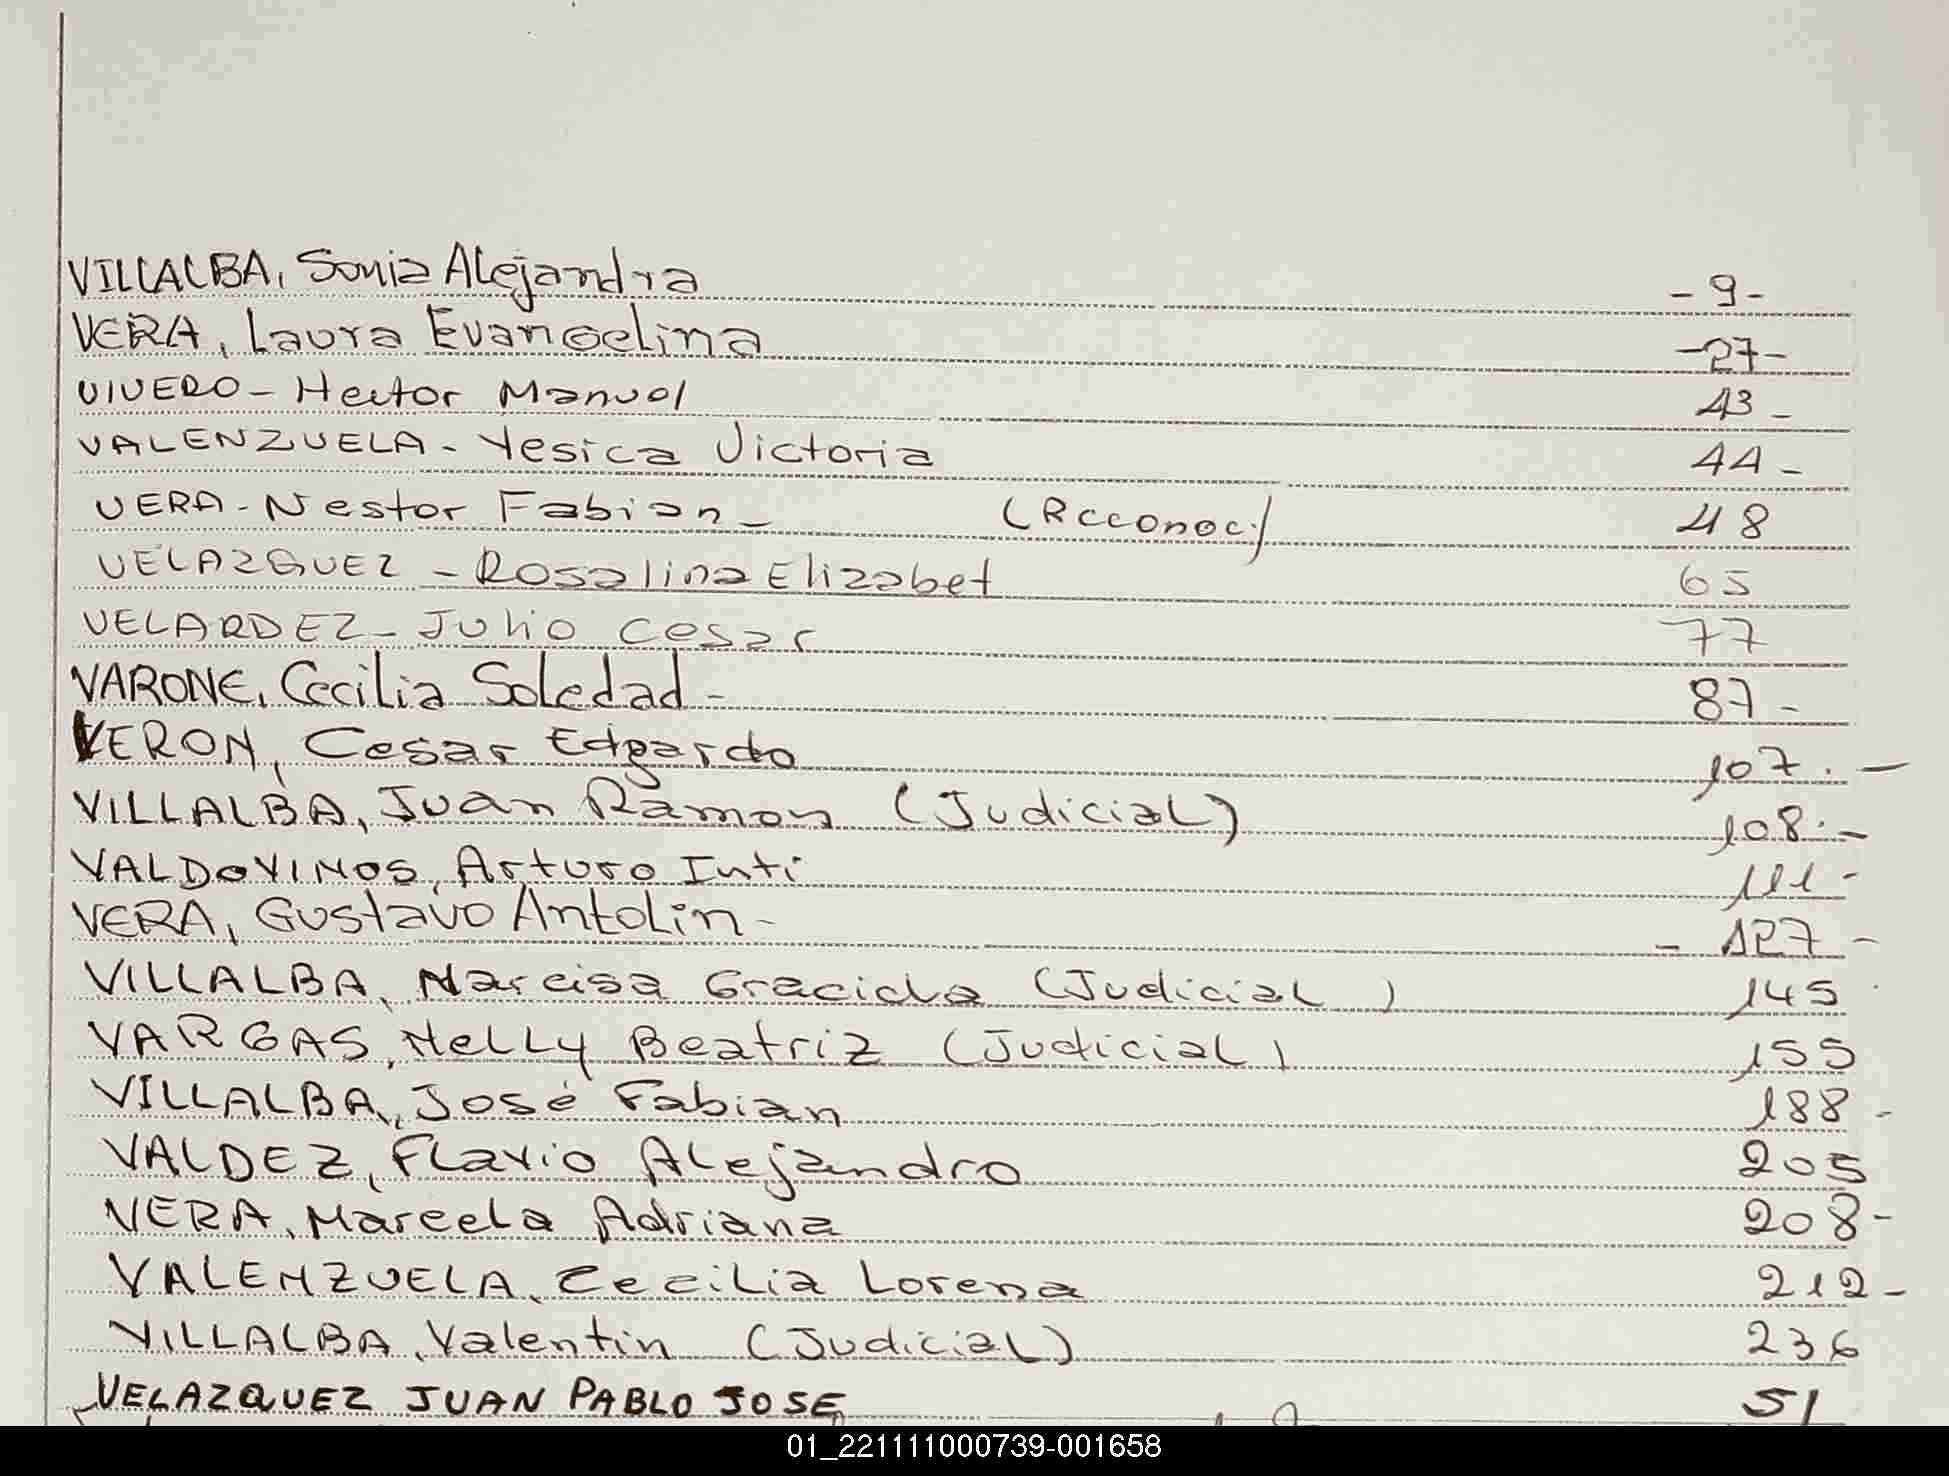 VILLALBA, Sonia Alejandra -9-
VERA, Laura Evangelina -27-
VIVERO - Hector Manuel 43 -
VALENZUELA - Yesica Victoria 44 -
VERA - Nestor Fabian - (Reconoc.) 48
VELAZQUEZ - Rosalina Elizabet 65
VELARDEZ - Julio Cesar 77
VARONE, Cecilia Soledad - 87 -
VERON, Cesar Edgardo 107. -
VILLALBA, Juan Ramon (Judicial) 108. -
VALDOVINOS, Arturo Inti 111 -
VERA, Gustavo Antolin - - 127 -
VILLALBA, Narcisa Graciela (Judicial) 145
VARGAS, Nelly Beatriz (Judicial) 155
VILLALBA, José Fabian 188 -
VALDEZ, Flavio Alejandro 205
VERA, Marcela Adriana 208 -
VALENZUELA, Cecilia Lorena 212 -
VILLALBA, Valentin (Judicial) 236
VELAZQUEZ JUAN PABLO JOSE 51
01_221111000739-001658